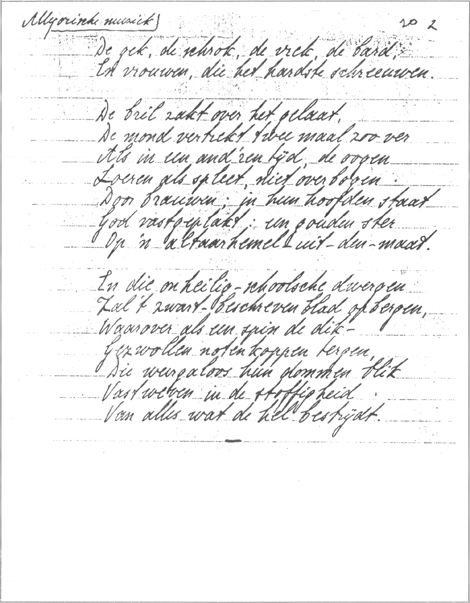 Allegorische muziek) 20 2
De gek, de schrok, de vrek, de bard,
En vrouwen, die het hardste schreeuwen.
De bril zakt over het gelaat,
De mond vertrekt twee maal zoo ver
Als in een and'ren tijd, de oogen
Loeren als spleet, niet overbogen
Door brauwen; in hun hoofden staat
God vastgeplakt: een gouden ster
Op 'n altaarhemel uit-den-maat.
En die onheilig-schoolsche dwergen
Zal 't zwart-beschreven blad opbergen,
Waarover als een spin de dik-
Gezwollen notenkoppen tergen,
Die weergaloos hun dommen blik
Vastweven in de stoffigheid
Van alles wat de hel bestrijdt.